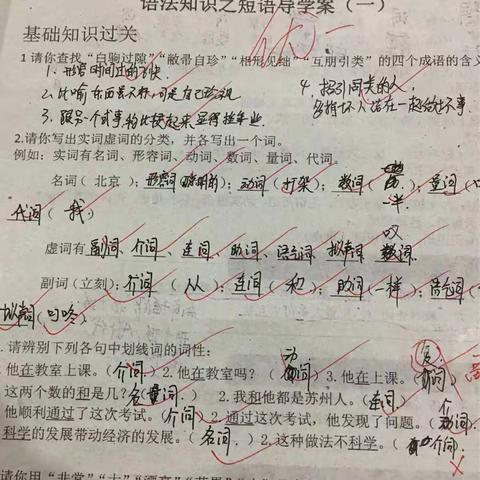 语法知识之短语导学案（一）
基础知识过关
1 请你查找“白驹过隙”“敝帚自珍”“相形见绌”“互朋引类”的四个成语的含义
1、形容时间过的飞快
4、招引同类的人，
2、比喻东西虽不好，可是自己珍视
多指坏人活在一起给坏事
3、跟另一个事物比较起来显得
2.请你写出实词虚词的分类，并各写出一个词。
例如：实词有名词、形容词、动词、数词、量词、代词。
名词（ 北京 ）；形容词（ ）；动词（打架）；数词（ 一半 ）；量词（
代词（我）
虚词有副词、介词、连词、助词、语气词、拟声词 叹词
副词（立刻）；介词（ 从 ）；连词（和）；助词（一样）；语气词（
拟声词（叮咚）
.请辨别下列各句中划线词的词性：
他在教室上课。（介词）2.他在教室吗？（动词）3.他在上课。（
这两个数的和是几？（名词）2.我和他都是苏州人。（连词）
他顺利通过了这次考试。（介词）2.通过这次考试，他发现了问题。（
科学的发展带动经济的发展。（名词）2.这种做法不科学。（
请你用“非常”“大”“漂亮”“苹果”